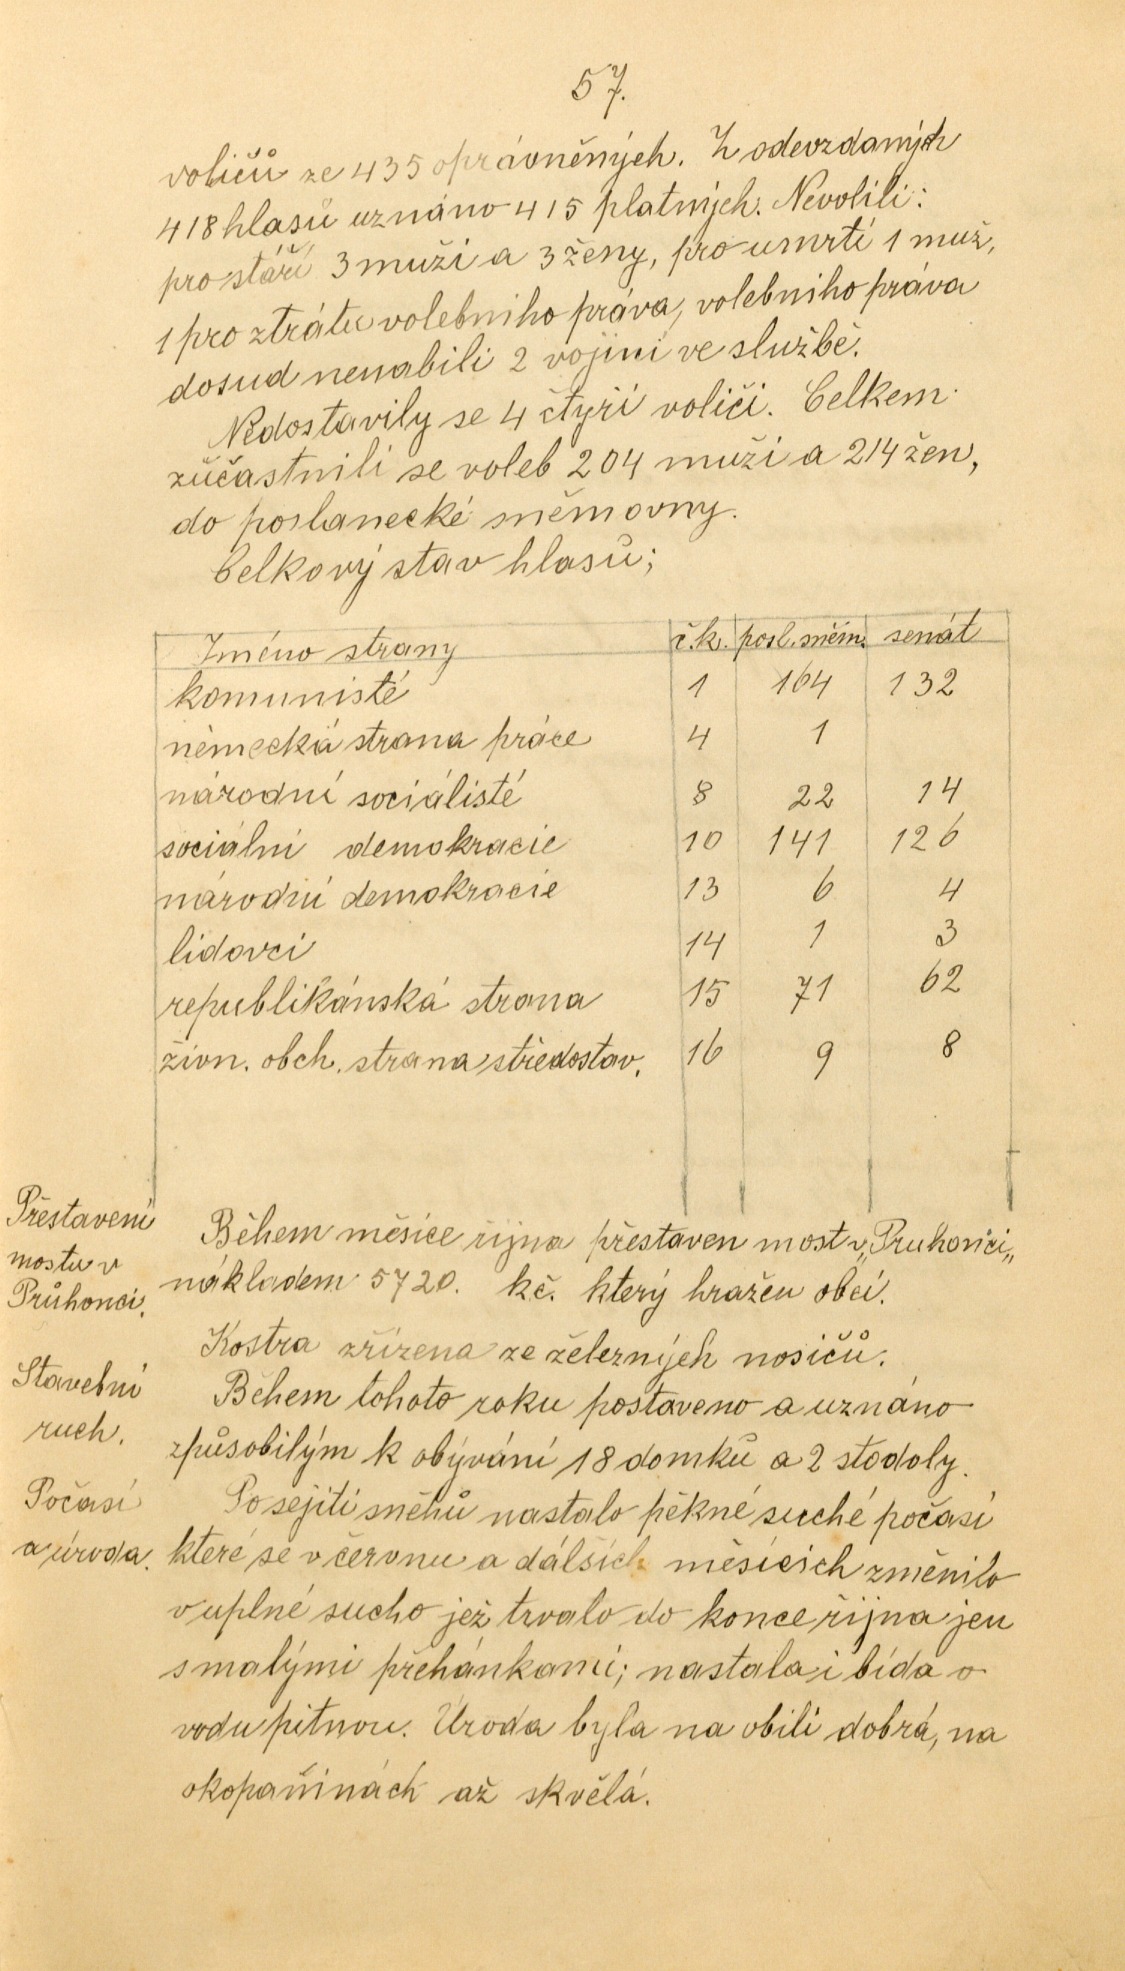 57.
voličů ze 435 oprávněných. Z odevzdaných
418 hlasů uznáno 415 platných. Nevolili:
pro stáří 3 muži a 3 ženy, pro umrtí 1 muž,
1 pro ztrátu volebniho práva, volebniho práva
dosud nenabili 2 vojíni ve službě.
Nedostavily se 4 čtyři voliči. Celkem
zůčastnili se voleb 204 muži a 214 žen,
do poslanecké sněmovny.
Celkový stav hlasů;
Jméno strany č.k. posl. sněm. senát
komunisté 1 164 132
německá strana práce 4 1
národní sociálisté 8 22 14
sociální demokracie 10 141 126
národní demokracie 13 6 4
lidovci 14 1 3
republikánská strana 15 71 62
živn. obch. strana středostav. 16 9 8
Přestavení
mostu v
Průhonci.
Během měsice řijna přestaven most v „Pruhonci„
nákladem 5720. kč. který hražen obcí.
Kostra zřízena ze železných nosičů.
Stavební
ruch.
Během tohoto roku postaveno a uznáno
způsobilým k obývání 18 domků a 2 stodoly.
Počasí
a úroda.
Po sejití sněhů nastalo pěkné suché počasí
které se v červnu a dálších měsících změnilo
v uplné sucho jež trvalo do konce řijna jen
s malými přehánkami; nastala i bída o
vodu pitnou. Úroda byla na obilí dobrá, na
okopaninách až skvělá.